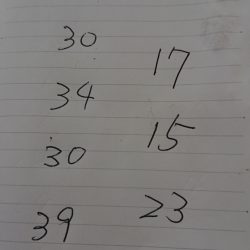 30
34
30
39
17
15
23